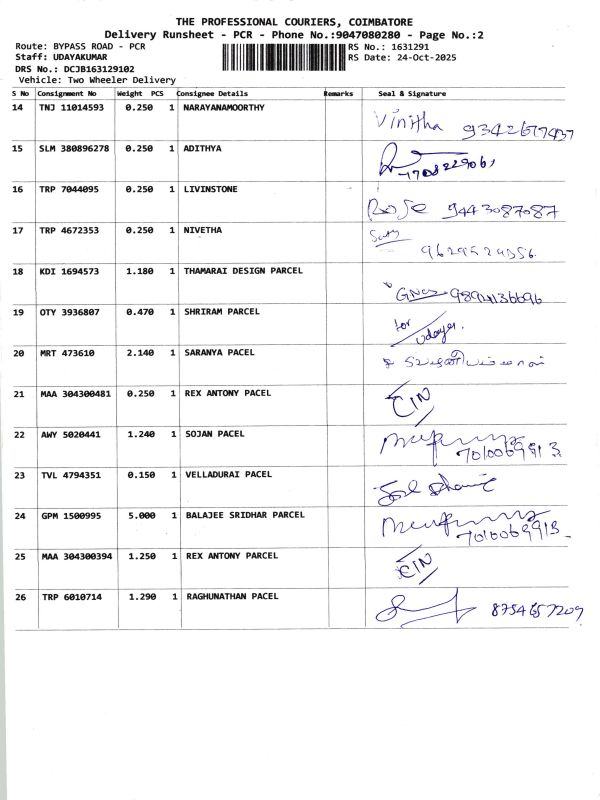 THE PROFESSIONAL COURIERS, COIMBATORE
Delivery Runsheet - PCR - Phone No.:9047080280 - Page No.:2
Route: BYPASS ROAD - PCR RS No.: 1631291
Staff: UDAYAKUMAR RS Date: 24-Oct-2025
DRS No.: DCJB163129102
Vehicle: Two Wheeler Delivery
S No Consignment No Weight PCS Consignee Details Remarks Seal & Signature
14 TNJ 11014593 0.250 1 NARAYANAMOORTHY Vinitha
15 SLM 380896278 0.250 1 ADITHYA
16 TRP 7044095 0.250 1 LIVINSTONE Rose 9443087087
17 TRP 4672353 0.250 1 NIVETHA
18 KDI 1694573 1.180 1 THAMARAI DESIGN PARCEL
19 OTY 3936807 0.470 1 SHRIRAM PARCEL for udaya.
20 MRT 473610 2.140 1 SARANYA PACEL
21 MAA 304300481 0.250 1 REX ANTONY PACEL CIN
22 AWY 5020441 1.240 1 SOJAN PACEL 7010069913
23 TVL 4794351 0.150 1 VELLADURAI PACEL
24 GPM 1500995 5.000 1 BALAJEE SRIDHAR PARCEL 7010069913
25 MAA 304300394 1.250 1 REX ANTONY PARCEL CIN
26 TRP 6010714 1.290 1 RAGHUNATHAN PACEL 8754657209